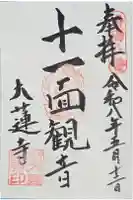 奉拝
令和八年五月十二日
十一面観音
大蓮寺